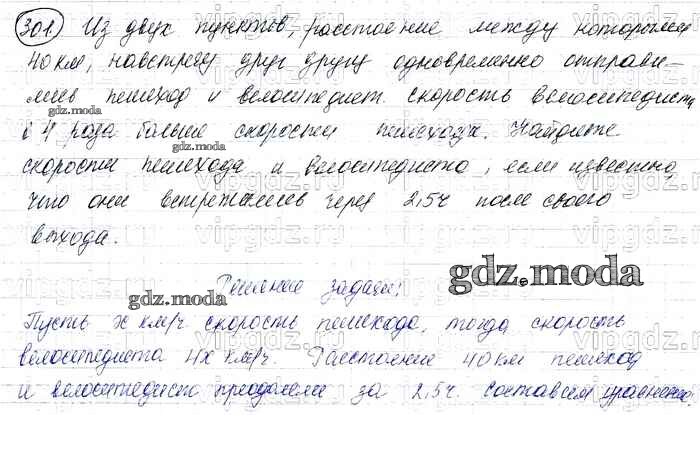 301. Из двух пунктов, расстояние между которыми
40 км, навстречу друг другу одновременно отправи-
лись пешеход и велосипедист. Скорость велосипедиста
в 4 раза больше скорости пешехода. Найдите
скорости пешехода и велосипедиста, если известно,
что они встретились через 2,5 ч после своего
выхода.
Решение задачи:
Пусть x км/ч скорость пешехода, тогда скорость
велосипедиста 4x км/ч. Расстояние 40 км пешеход
и велосипедист преодолели за 2,5 ч. Составим уравнение:
gdz.moda
gdz.moda
gdz.moda
gdz.moda
vipgdz.ru